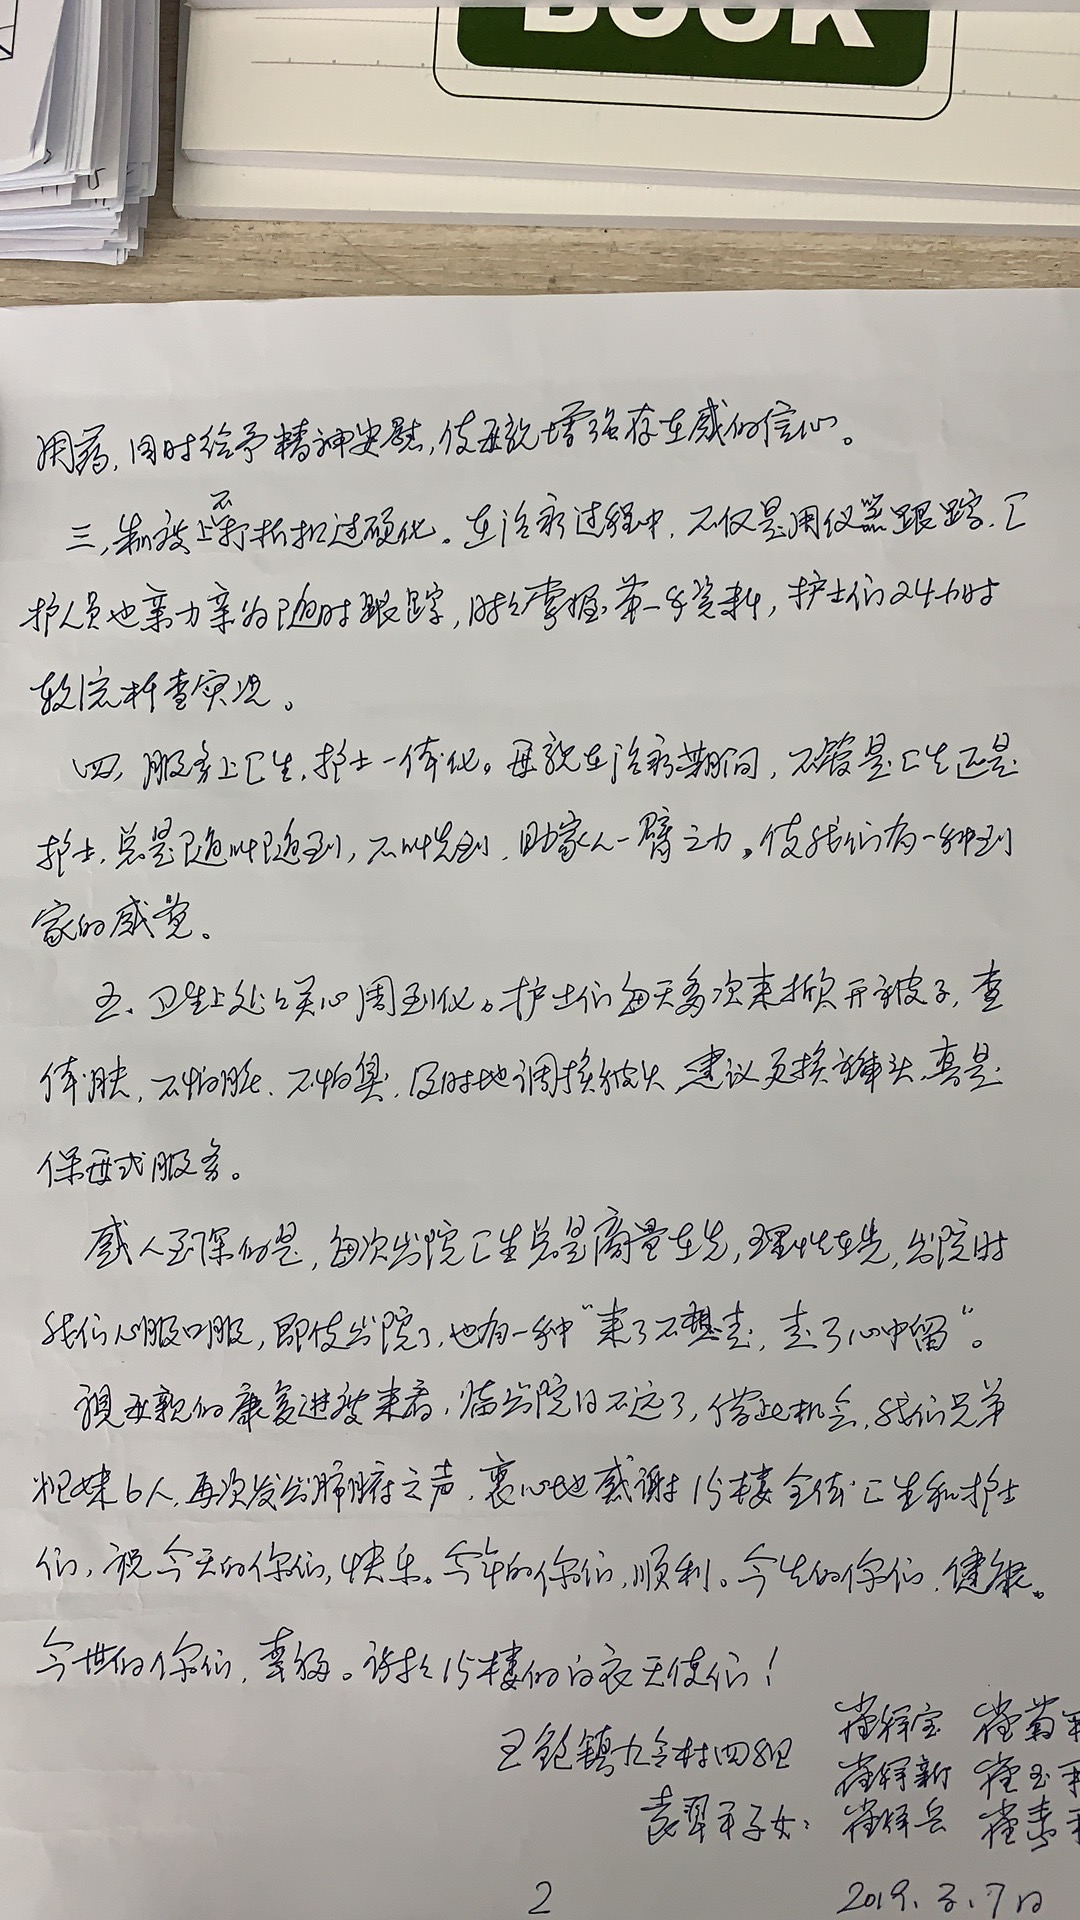 BOOK
用药,同时给予精神安慰,使母亲增强存在感的信心。
三,制度上不打折扣过硬化。在治疗过程中,不仅是用仪器跟踪,匚
护人员也亲力亲为随时跟踪,时时掌握第一手资料,护士们24小时
轮流查实况。
四,服务上匚生,护士一体化。母亲在治疗期间,不管是匚生还是
护士,总是随叫随到,不叫先到,助家人一臂之力。使我们有一种到
家的感觉。
五、卫生上处处关心周到化。护士们每天多次来掀开被子,查
体肤,不怕脏、不怕臭,及时地调换,建议更换,真是
保母式服务。
感人至深的是,每次出院匚生总是商量在先,理性在先,出院时
我们心服口服,即使出院了,也有一种“来了不想走,走了心中留”。
视母亲的康复进度来看,临出院日不远了,借此机会,我们兄弟
姐妹6人,再次发出肺腑之声,衷心地感谢15楼全体匚生和护士
们,祝今天的你们,快乐。今年的你们,顺利。今生的你们,健康。
今世的你们,幸福。谢谢15楼的白衣天使们!
王鲍镇九合村四组
子女:
2
2019.3.7日